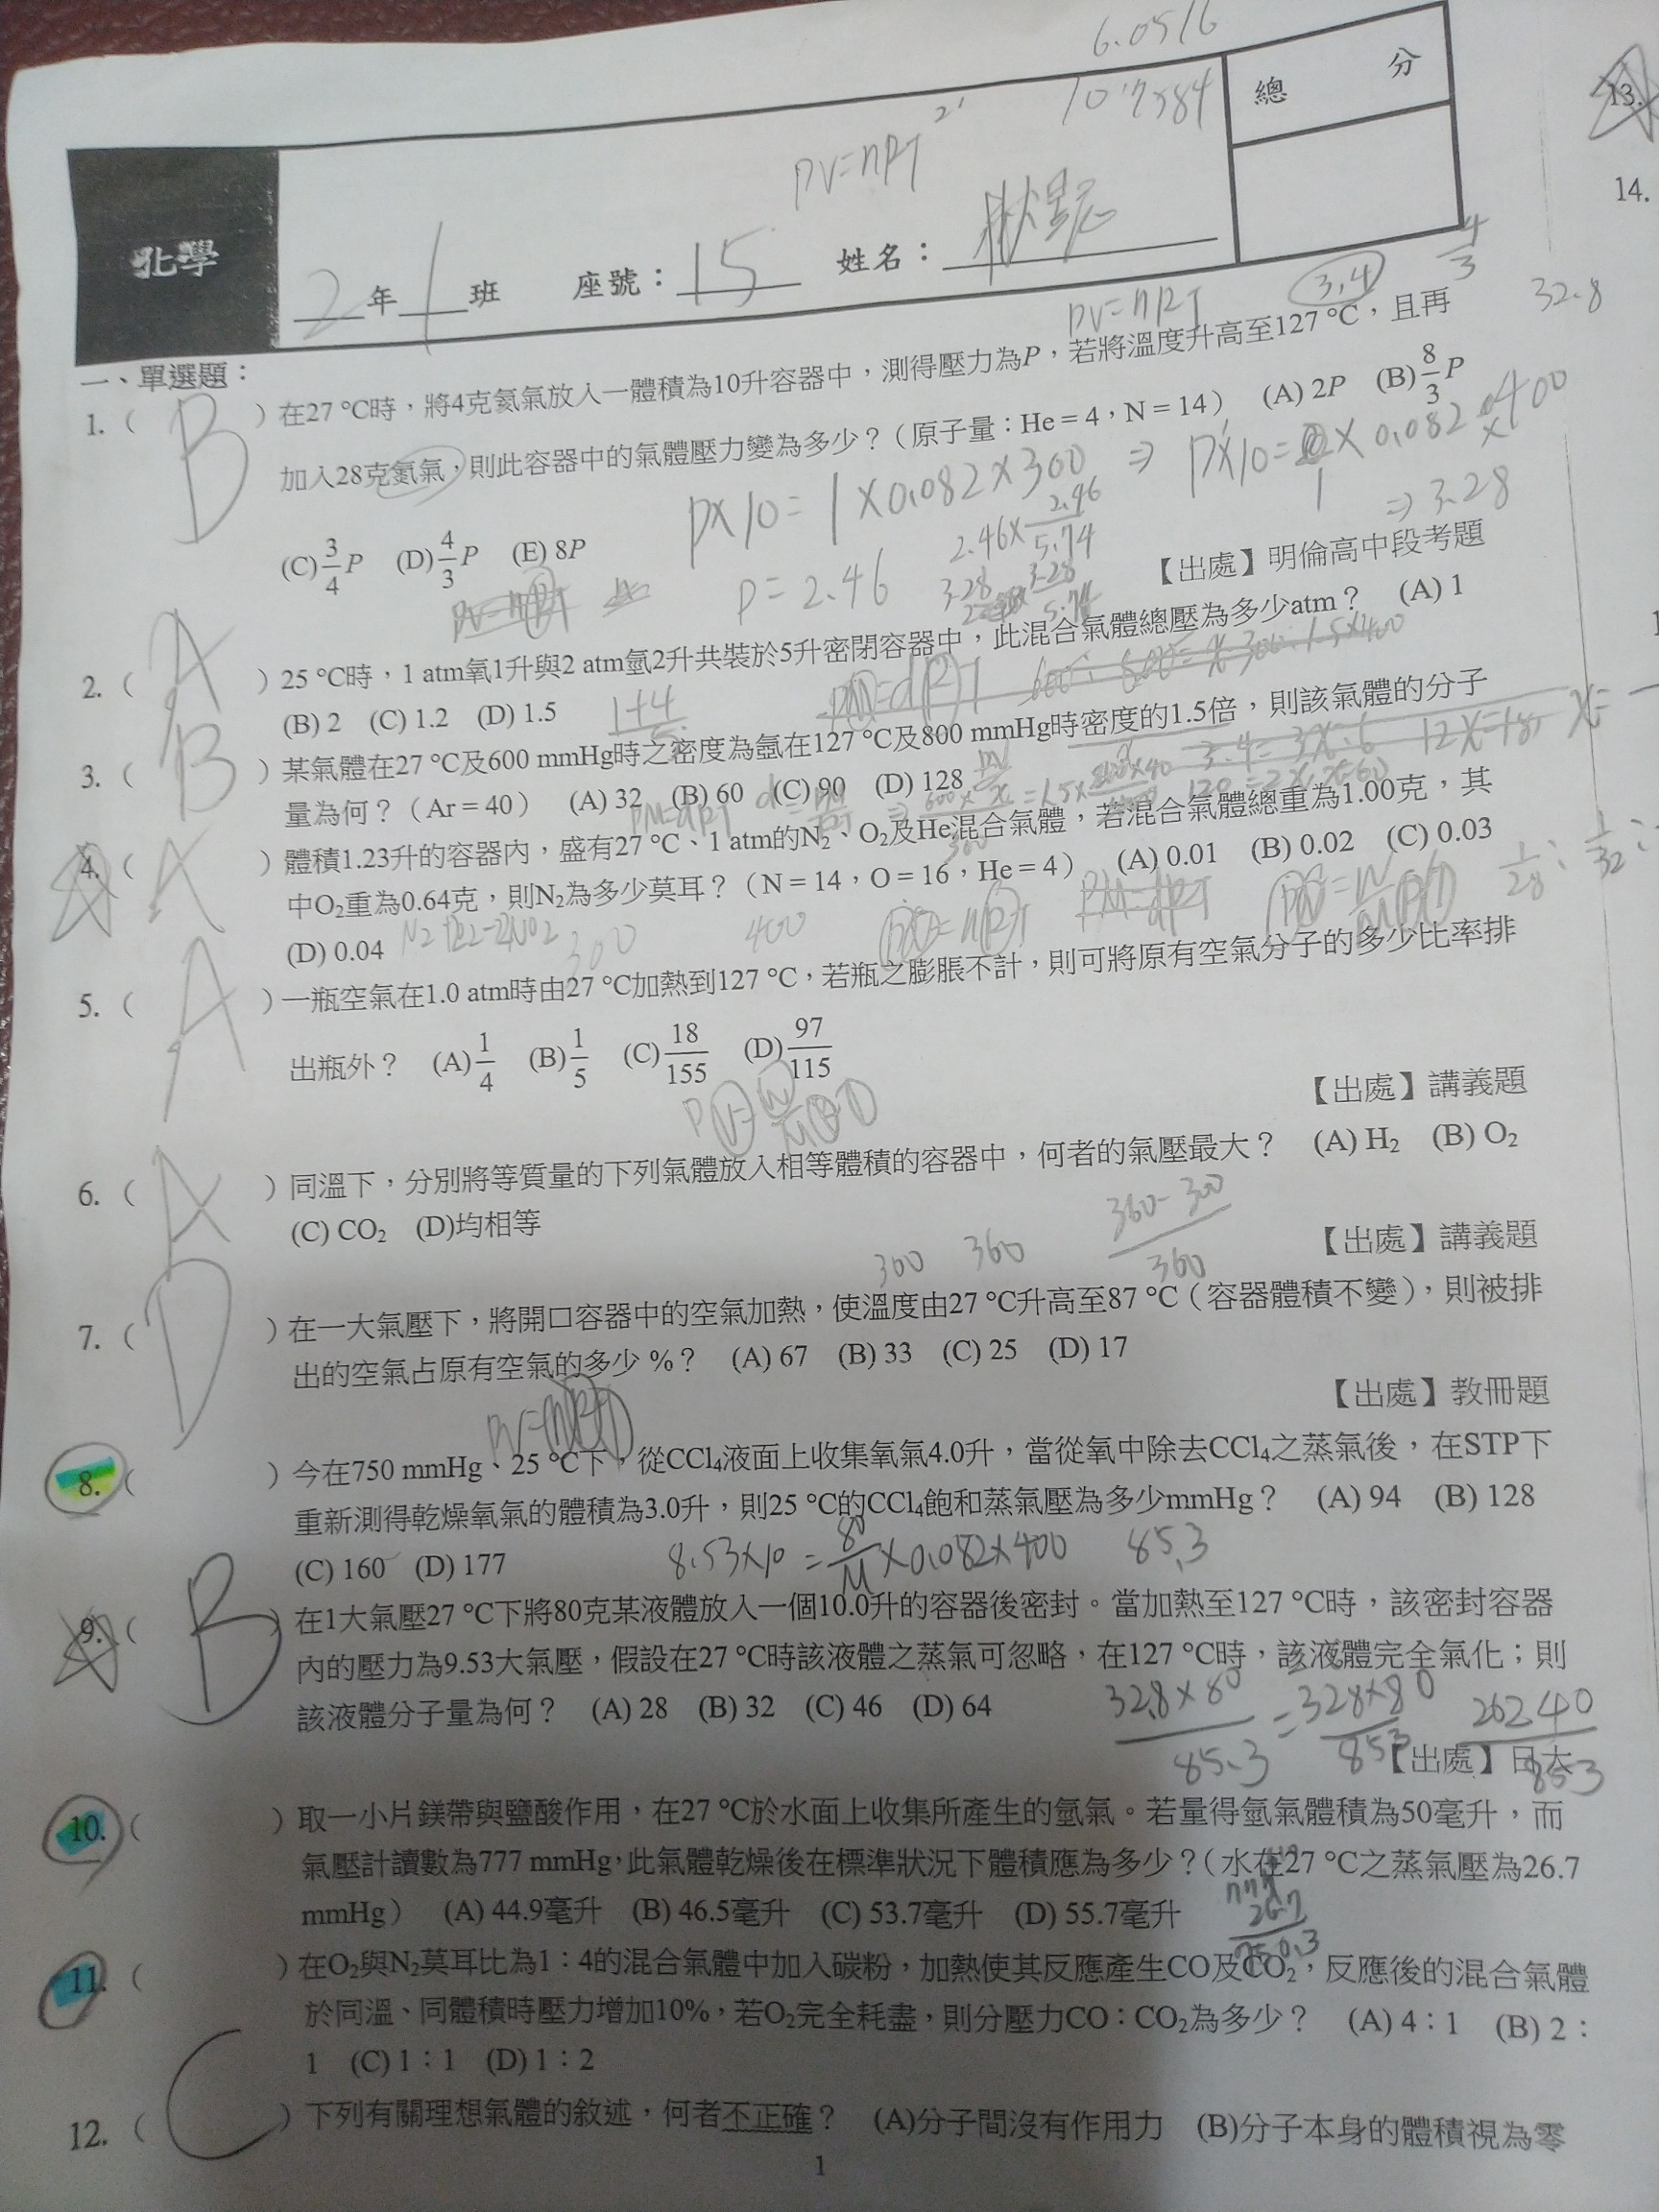 6.0516
總 分
PV=nRT
化學
2年1班 座號:15 姓名:
PV=nRT
3,4
4/3
32.8
13.
14.
一、單選題:
1. ( B )在27 °C時,將4克氦氣放入一體積為10升容器中,測得壓力為P,若將溫度升高至127 °C,且再
加入28克氮氣,則此容器中的氣體壓力變為多少?(原子量:He = 4,N = 14) (A) 2P (B) 8/3 P
(C) 3/4 P (D) 4/3 P (E) 8P
PX10=1X0.082X300
⇒3.28
P=2.46
【出處】明倫高中段考題
2. ( A )25 °C時,1 atm氧1升與2 atm氫2升共裝於5升密閉容器中,此混合氣體總壓為多少atm? (A) 1
(B) 2 (C) 1.2 (D) 1.5
3. ( B )某氣體在27 °C及600 mmHg時之密度為氬在127 °C及800 mmHg時密度的1.5倍,則該氣體的分子
量為何?(Ar = 40) (A) 32 (B) 60 (C) 90 (D) 128
4. ( A )體積1.23升的容器內,盛有27 °C、1 atm的N2、O2及He混合氣體,若混合氣體總重為1.00克,其
中O2重為0.64克,則N2為多少莫耳?(N = 14,O = 16,He = 4) (A) 0.01 (B) 0.02 (C) 0.03
(D) 0.04
300 400
5. ( A )一瓶空氣在1.0 atm時由27 °C加熱到127 °C,若瓶之膨脹不計,則可將原有空氣分子的多少比率排
出瓶外? (A) 1/4 (B) 1/5 (C) 18/155 (D) 97/115
【出處】講義題
6. ( A )同溫下,分別將等質量的下列氣體放入相等體積的容器中,何者的氣壓最大? (A) H2 (B) O2
(C) CO2 (D)均相等
【出處】講義題
300 360 360-300/360
7. ( D )在一大氣壓下,將開口容器中的空氣加熱,使溫度由27 °C升高至87 °C(容器體積不變),則被排
出的空氣占原有空氣的多少 %? (A) 67 (B) 33 (C) 25 (D) 17
【出處】教冊題
8. ( )今在750 mmHg、25 °C下,從CCl4液面上收集氧氣4.0升,當從氧中除去CCl4之蒸氣後,在STP下
重新測得乾燥氧氣的體積為3.0升,則25 °C的CCl4飽和蒸氣壓為多少mmHg? (A) 94 (B) 128
(C) 160 (D) 177
8.53X10=80/M X0.082X400 85.3
9. ( B )在1大氣壓27 °C下將80克某液體放入一個10.0升的容器後密封。當加熱至127 °C時,該密封容器
內的壓力為9.53大氣壓,假設在27 °C時該液體之蒸氣可忽略,在127 °C時,該液體完全氣化;則
該液體分子量為何? (A) 28 (B) 32 (C) 46 (D) 64
32.8X80/85.3=328X80/853 26240/853
【出處】日大
10. ( )取一小片鎂帶與鹽酸作用,在27 °C於水面上收集所產生的氫氣。若量得氫氣體積為50毫升,而
氣壓計讀數為777 mmHg,此氣體乾燥後在標準狀況下體積應為多少?(水在27 °C之蒸氣壓為26.7
mmHg) (A) 44.9毫升 (B) 46.5毫升 (C) 53.7毫升 (D) 55.7毫升
777
26.7
750.3
11. ( )在O2與N2莫耳比為1:4的混合氣體中加入碳粉,加熱使其反應產生CO及CO2,反應後的混合氣體
於同溫、同體積時壓力增加10%,若O2完全耗盡,則分壓力CO:CO2為多少? (A) 4:1 (B) 2:
1 (C) 1:1 (D) 1:2
12. ( C )下列有關理想氣體的敘述,何者不正確? (A)分子間沒有作用力 (B)分子本身的體積視為零
1